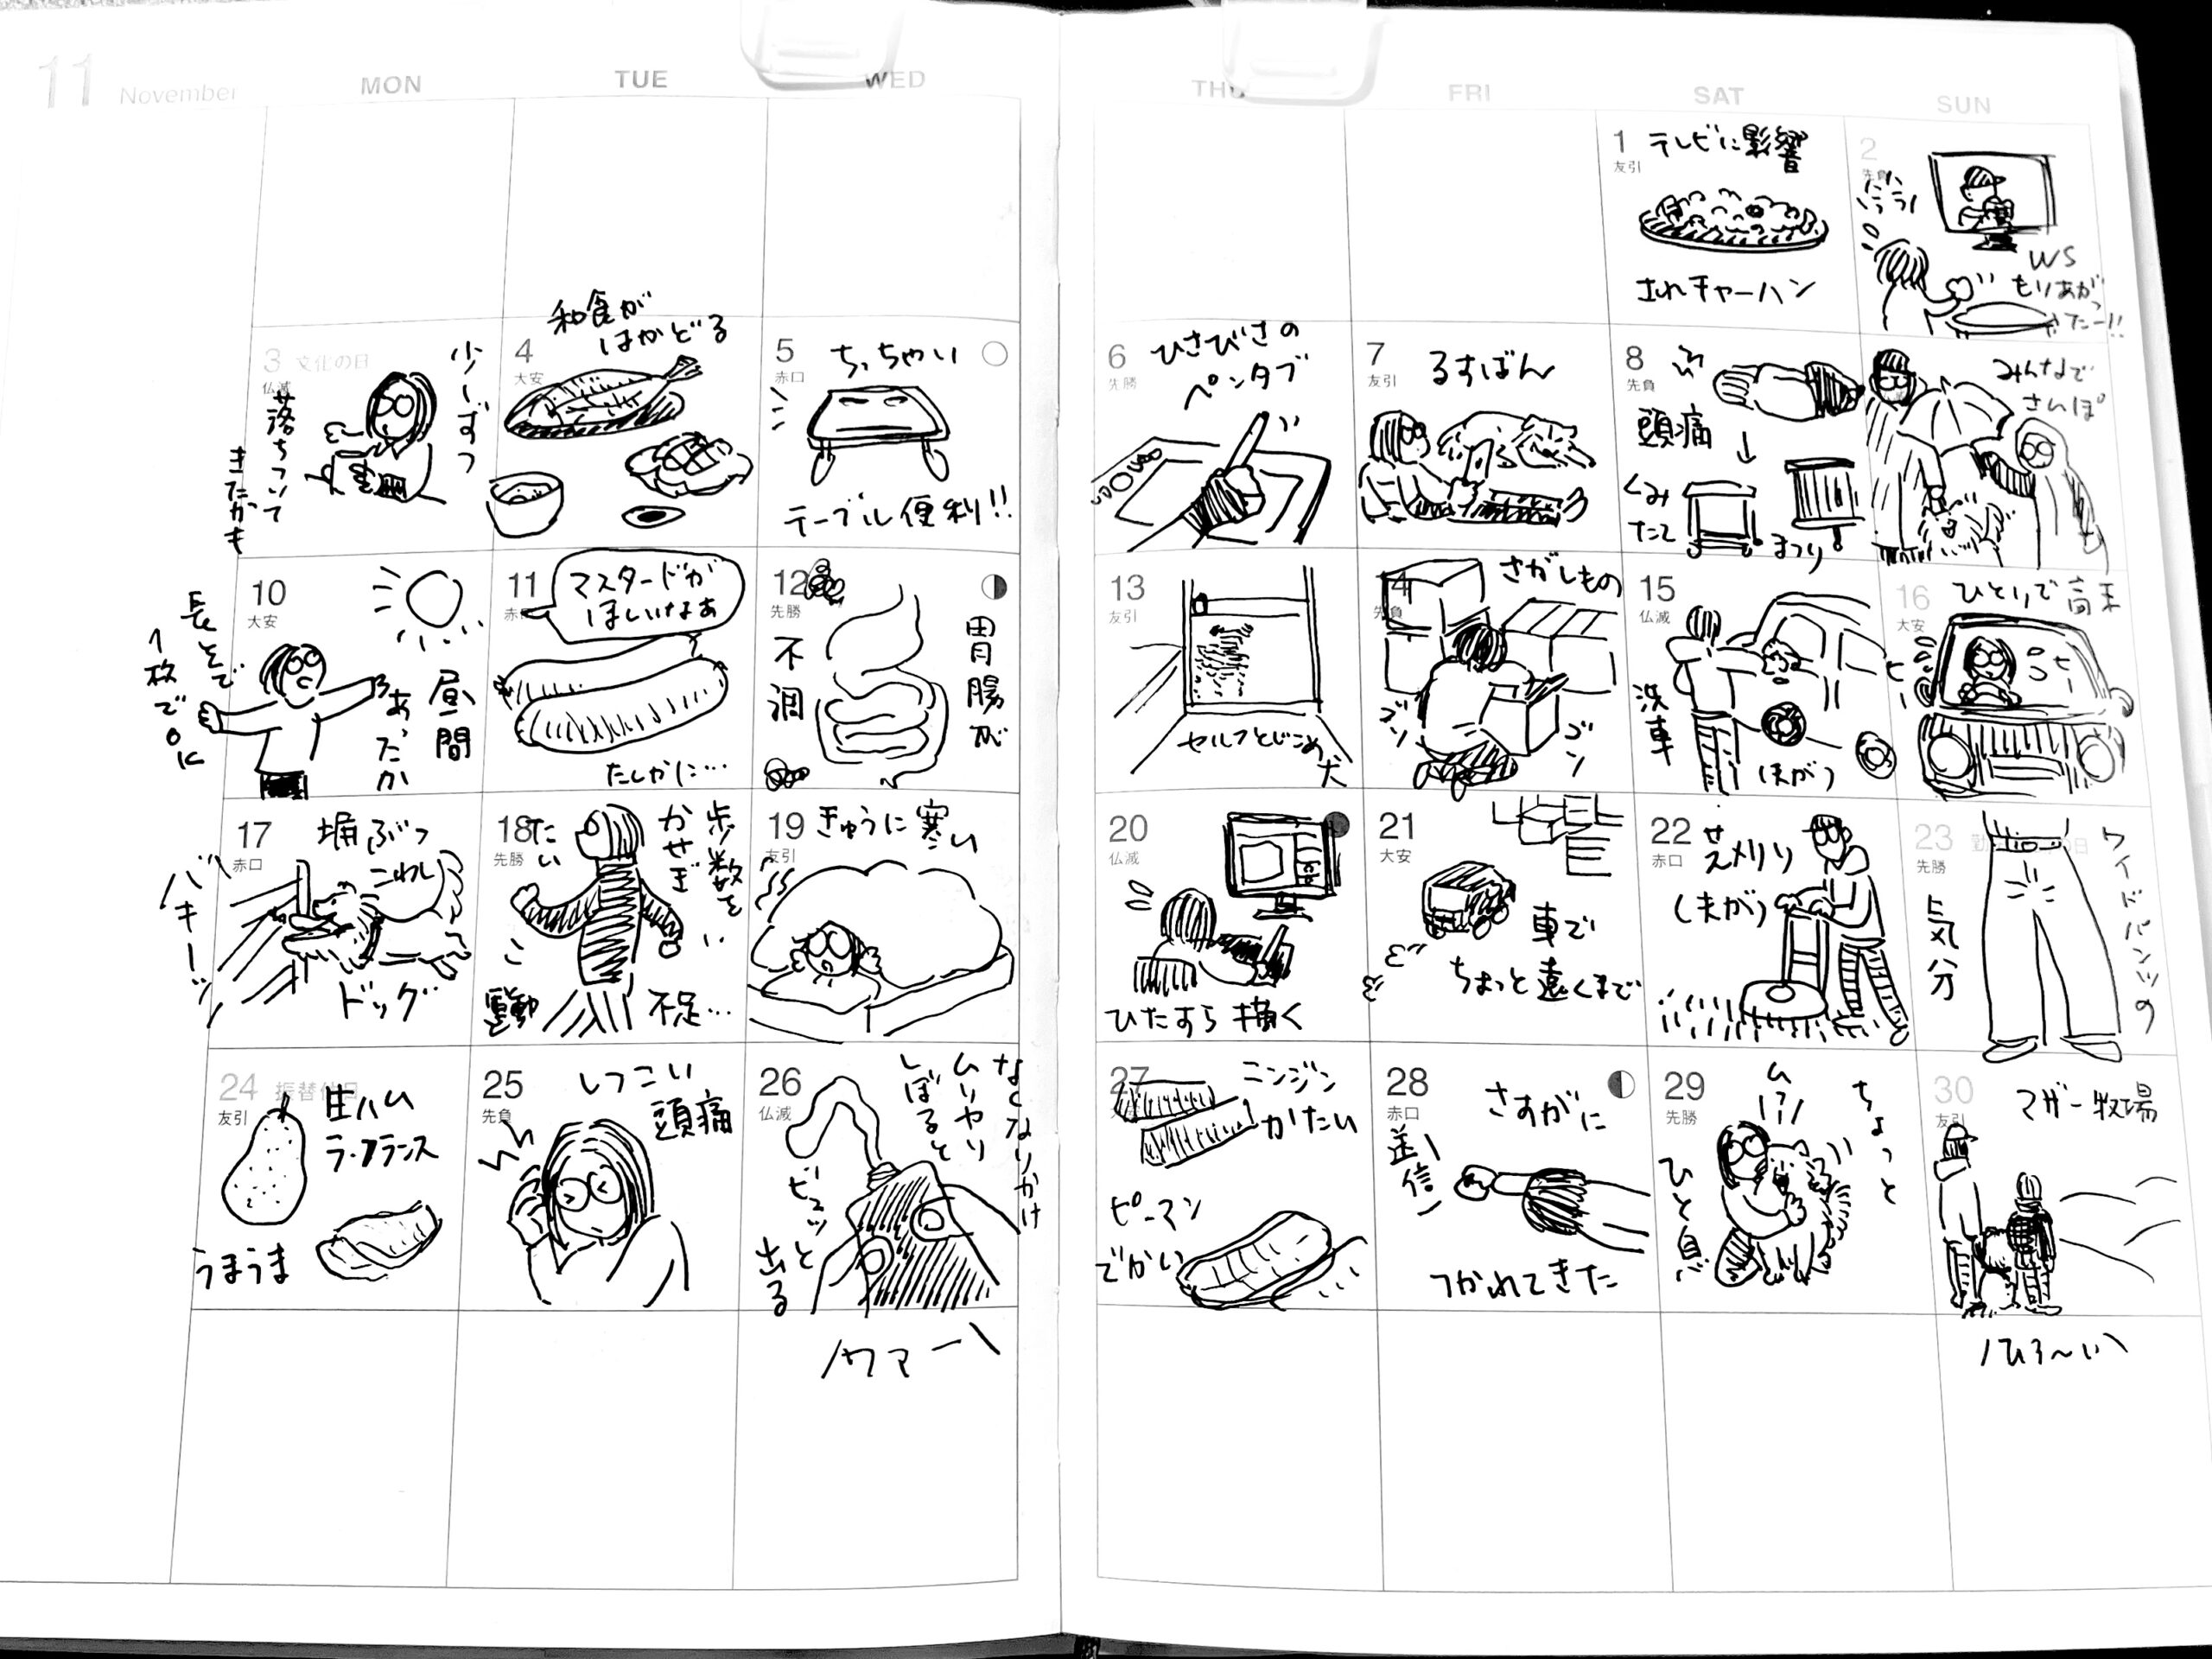 11 November
MON
TUE
WED
THU
FRI
SAT
SUN
1
友引
テレビに影響
されチャーハン
2
WS
もりあがっ
たー!!
3 文化の日
仏滅
少しずつ
落ちついて
きたかも
4
大安
和食が
はかどる
5
赤口
ちっちゃい
テーブル便利!!
6
先勝
ひさびさの
ペンタブ
7
友引
るすばん
8
先負
頭痛
↓
くみ
たて
まつり
みんなで
さんぽ
10
大安
昼間
あったか
長そで
1枚でOK
11
マスタードが
ほしいなぁ
たしかに…
12
先勝
胃腸が
不調
13
友引
セルフとじこめ
犬
14
先負
さがしもの
ゴソ
ゴソ
15
仏滅
洗車
(夫が)
16
大安
ひとりで高速
ヒー
ヒー
17
赤口
塀ぶっ
こわし
ドッグ
バキーッ
18
先勝
歩数を
かせぎ
たい…
運動
不足…
19
友引
きゅうに寒い
20
仏滅
ひたすら描く
21
大安
車で
ちょっと遠くまで
22
赤口
芝メリリ
(夫が)
23
先勝
ワイドパンツの
気分
24 振替休日
友引
生ハム
ラ・フランス
うまうま
25
先負
しつこい
頭痛
26
仏滅
なくなりかけ
ムリやり
しぼると
ビュッと
出る
ワァー
27
ニンジン
かたい
ピーマン
でかい
28
赤口
さすがに
送信
つかれてきた
29
先勝
ちょっと
ひと息
30
友引
マザー牧場
ひろ〜い